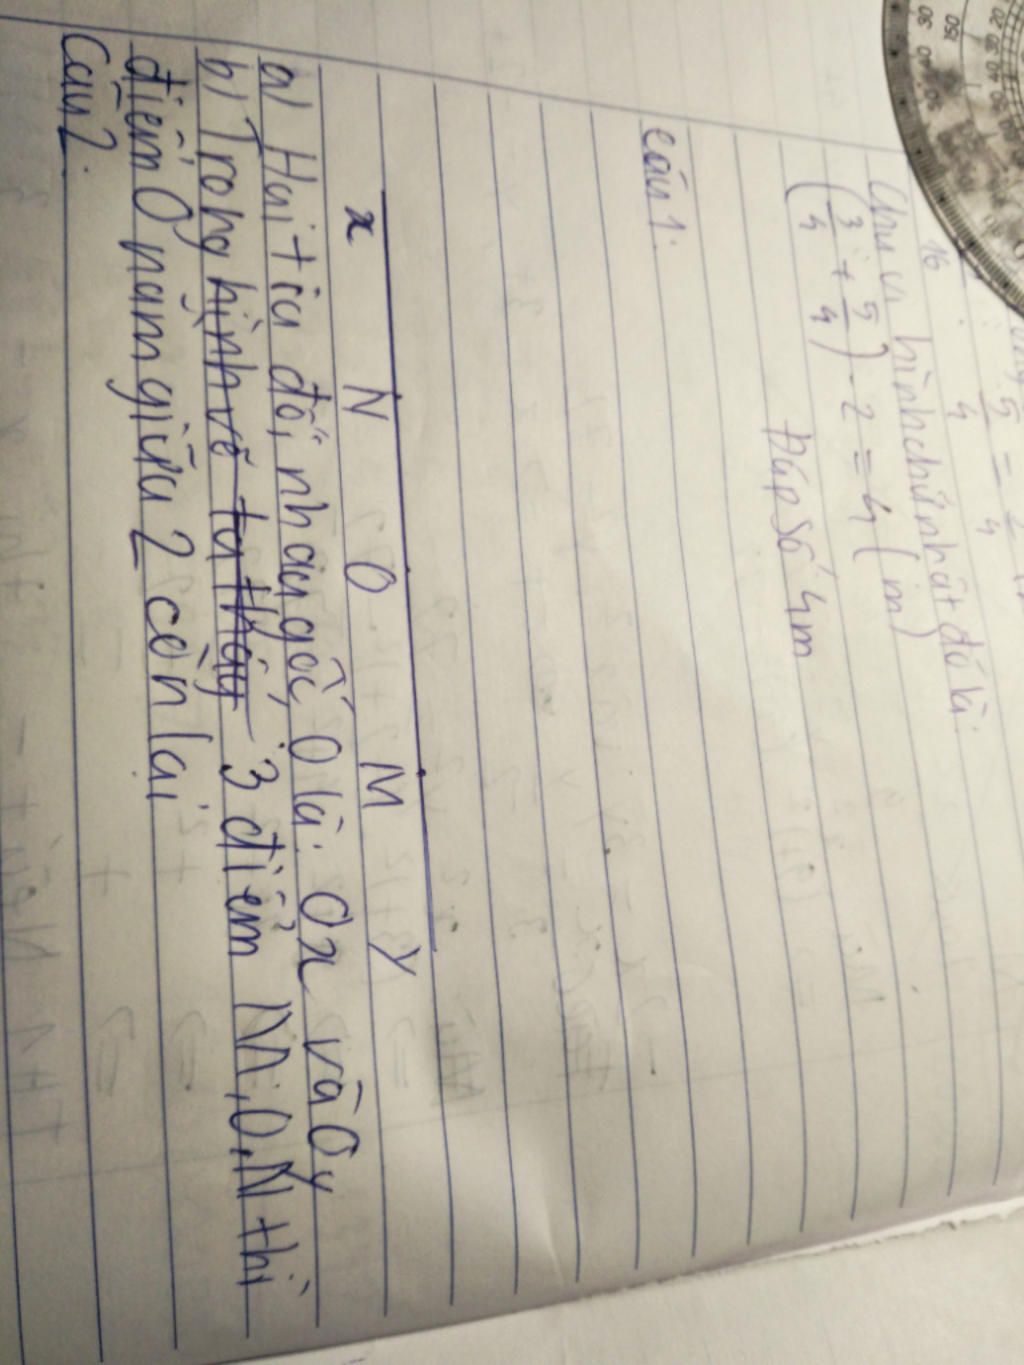 Chu vi hình chữ nhật đó là:
(3/4 + 5/4) . 2 = 4 (m)
Đáp số 4m
câu 1:
x N O M y
a) Hai tia đối nhau gốc O là: Ox và Oy
b) Trong hình vẽ ta thấy 3 điểm M, O, N thì
điểm O nằm giữa 2 còn lại
Câu 2.